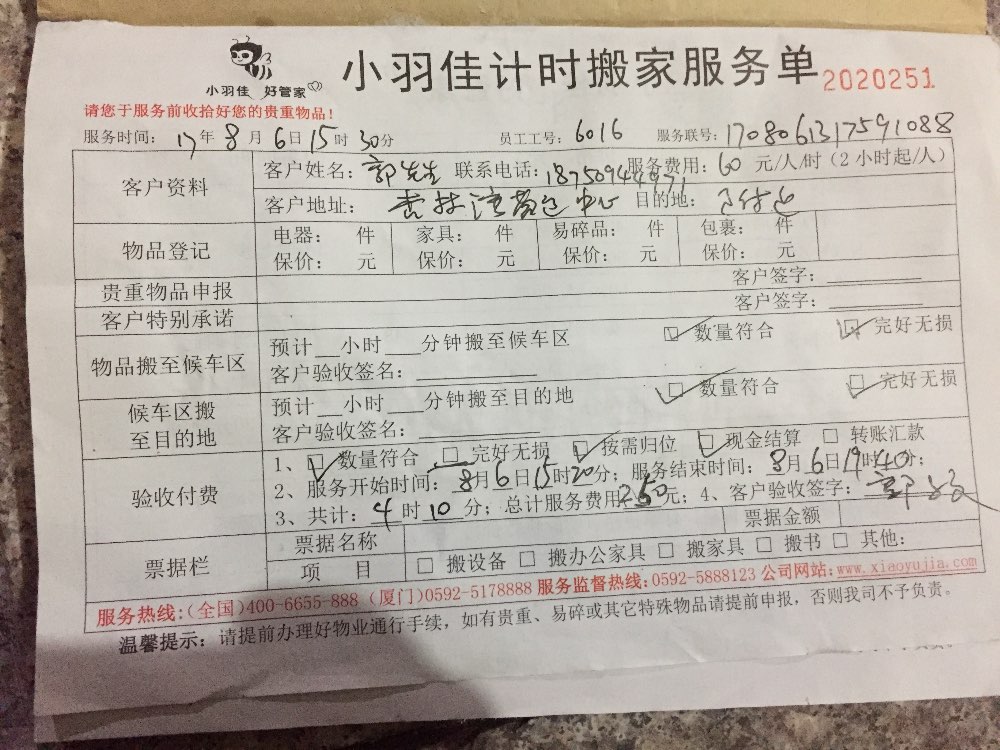 小羽佳 好管家
小羽佳计时搬家服务单 2020251
请您于服务前收拾好您的贵重物品！
服务时间： 17年8月6日15时30分 员工工号：6016 服务联号：1708061317591088
客户资料 客户姓名：郭先生 联系电话： 服务费用：60 元/人/时（2小时起/人）
客户地址： 杏林湾营运中心 目的地：
物品登记 电器： 件 家具： 件 易碎品： 件 包裹： 件
保价： 元 保价： 元 保价： 元 保价： 元
贵重物品申报 客户签字：
客户特别承诺 客户签字：
物品搬至候车区 预计__小时___分钟搬至候车区 ☑ 数量符合 ☑ 完好无损
客户验收签名：
候车区搬至目的地 预计__小时___分钟搬至目的地 ☑ 数量符合 ☑ 完好无损
客户验收签名：
验收付费 1、☑ 数量符合 □ 完好无损 ☑ 按需归位 ☑ 现金结算 □ 转账汇款
2、服务开始时间：8月6日15时20分；服务结束时间：8月6日19时40分；
3、共计：4时10分；总计服务费用250元；4、客户验收签字：
票据栏 票据名称 票据金额
项 目 □ 搬设备 □ 搬办公家具 □ 搬家具 □ 搬书 □ 其他：
服务热线：（全国）400-6655-888（厦门）0592-5178888 服务监督热线：0592-5888123 公司网站：www.xiaoyujia.com
温馨提示：请提前办理好物业通行手续，如有贵重、易碎或其它特殊物品请提前申报，否则我司不予负责。